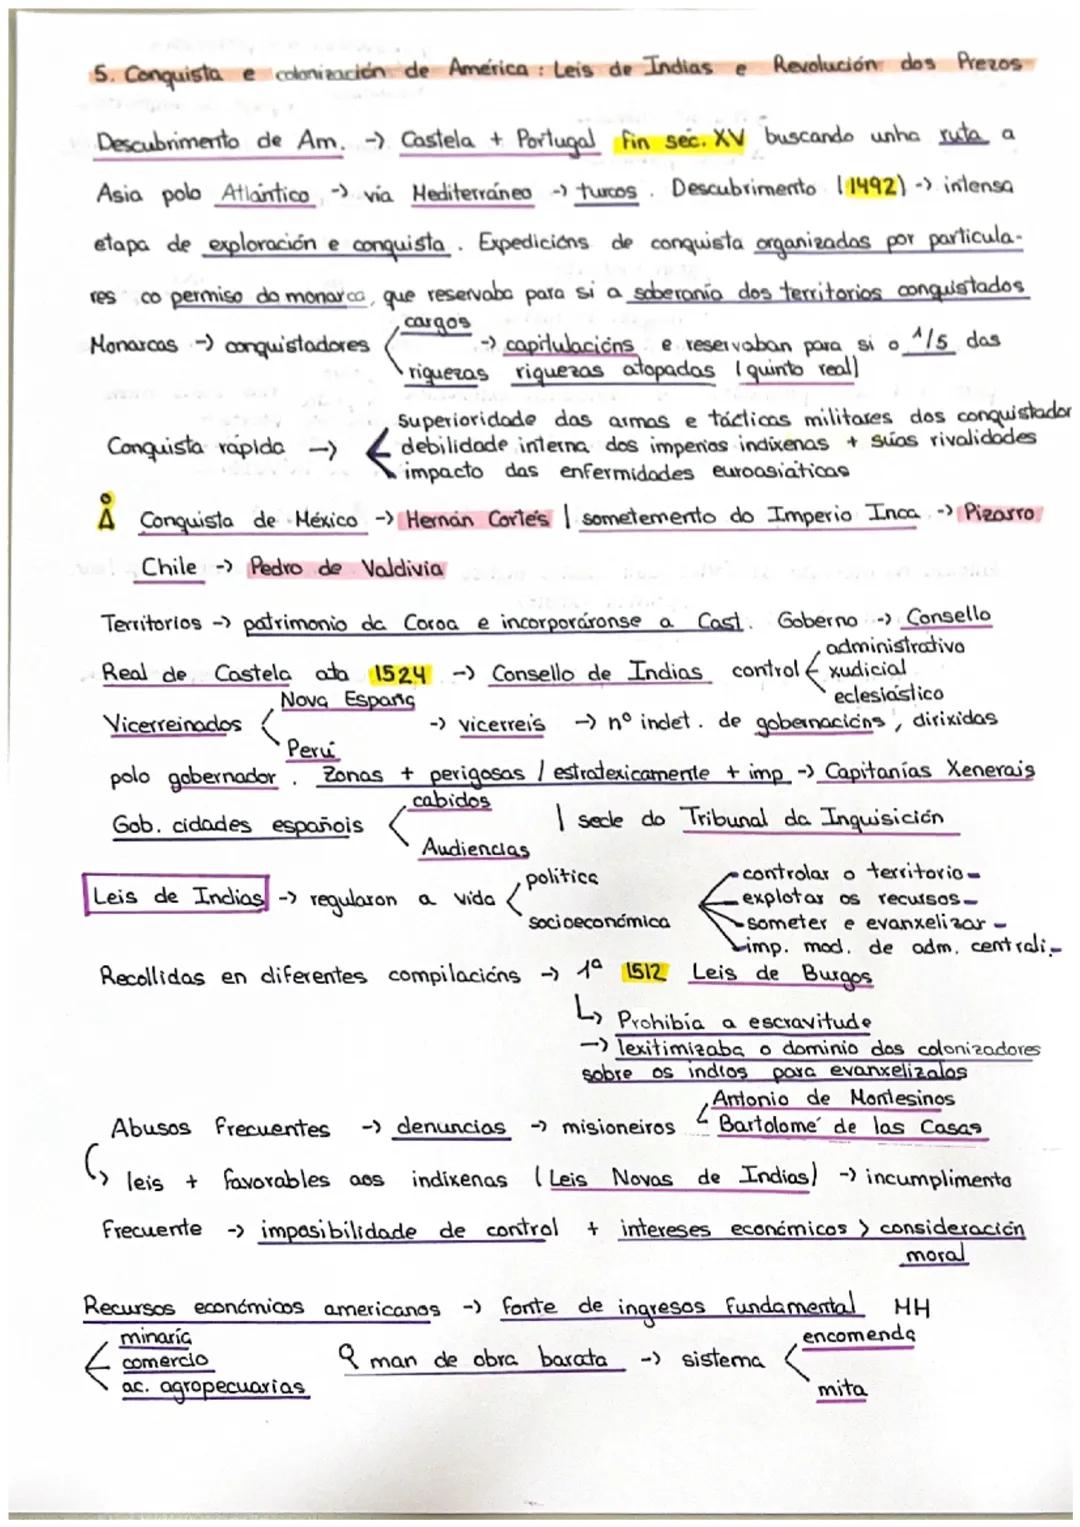 5. Conquista e colonización de América : Leis de Indias e Revolución dos Prezos
Descubrimento de Am. -> Castela + Portugal fin séc. XV buscando unha ruta a
Asia polo Atlántico -> vía Mediterráneo -> turcos. Descubrimento (1492) -> intensa
etapa de exploración e conquista. Expedicións de conquista organizadas por particula-
res co permiso do monarca, que reservaba para si a soberanía dos territorios conquistados
cargos
Monarcas -> conquistadores -> capitulacións e reservaban para si o 1/5 das
riquezas riquezas atopadas (quinto real)
superioridade das armas e tácticas militares dos conquistador
Conquista rápida -> debilidade interna dos imperios indíxenas + súas rivalidades
impacto das enfermidades euroasiáticas
Conquista de México -> Hernán Cortés | sometemento do Imperio Inca -> Pizarro
Chile -> Pedro de Valdivia
Territorios -> patrimonio da Coroa e incorporáronse a Cast. Goberno -> Consello
administrativo
Real de Castela ata 1524 -> Consello de Indias control xudicial
eclesiástico
Nova España
Vicerreinados -> vicerreis -> nº indet. de gobernacións, dirixidas
Perú
polo gobernador. Zonas + perigosas / estratexicamente + imp -> Capitanías Xenerais
cabidos
Gob. cidades españois | sede do Tribunal da Inquisición
Audiencias
política
Leis de Indias -> regularon a vida
socioeconómica
controlar o territorio
explotar os recursos
someter e evanxelizar
imp. mod. de adm. centrali-
Recollidas en diferentes compilacións -> 1ª 1512 Leis de Burgos
Prohibía a escravitude
-> lexitimizaba o dominio dos colonizadores
sobre os indios para evanxelizalos
Antonio de Montesinos
Abusos frecuentes -> denuncias -> misioneiros Bartolomé de las Casas
leis + favorables aos indíxenas (Leis Novas de Indias) -> incumplimento
frecuente -> imposibilidade de control + intereses económicos > consideración
moral
Recursos económicos americanos -> fonte de ingresos fundamental MH
minaría
comercio
ac. agropecuarias
man de obra barata -> sistema
encomenda
mita